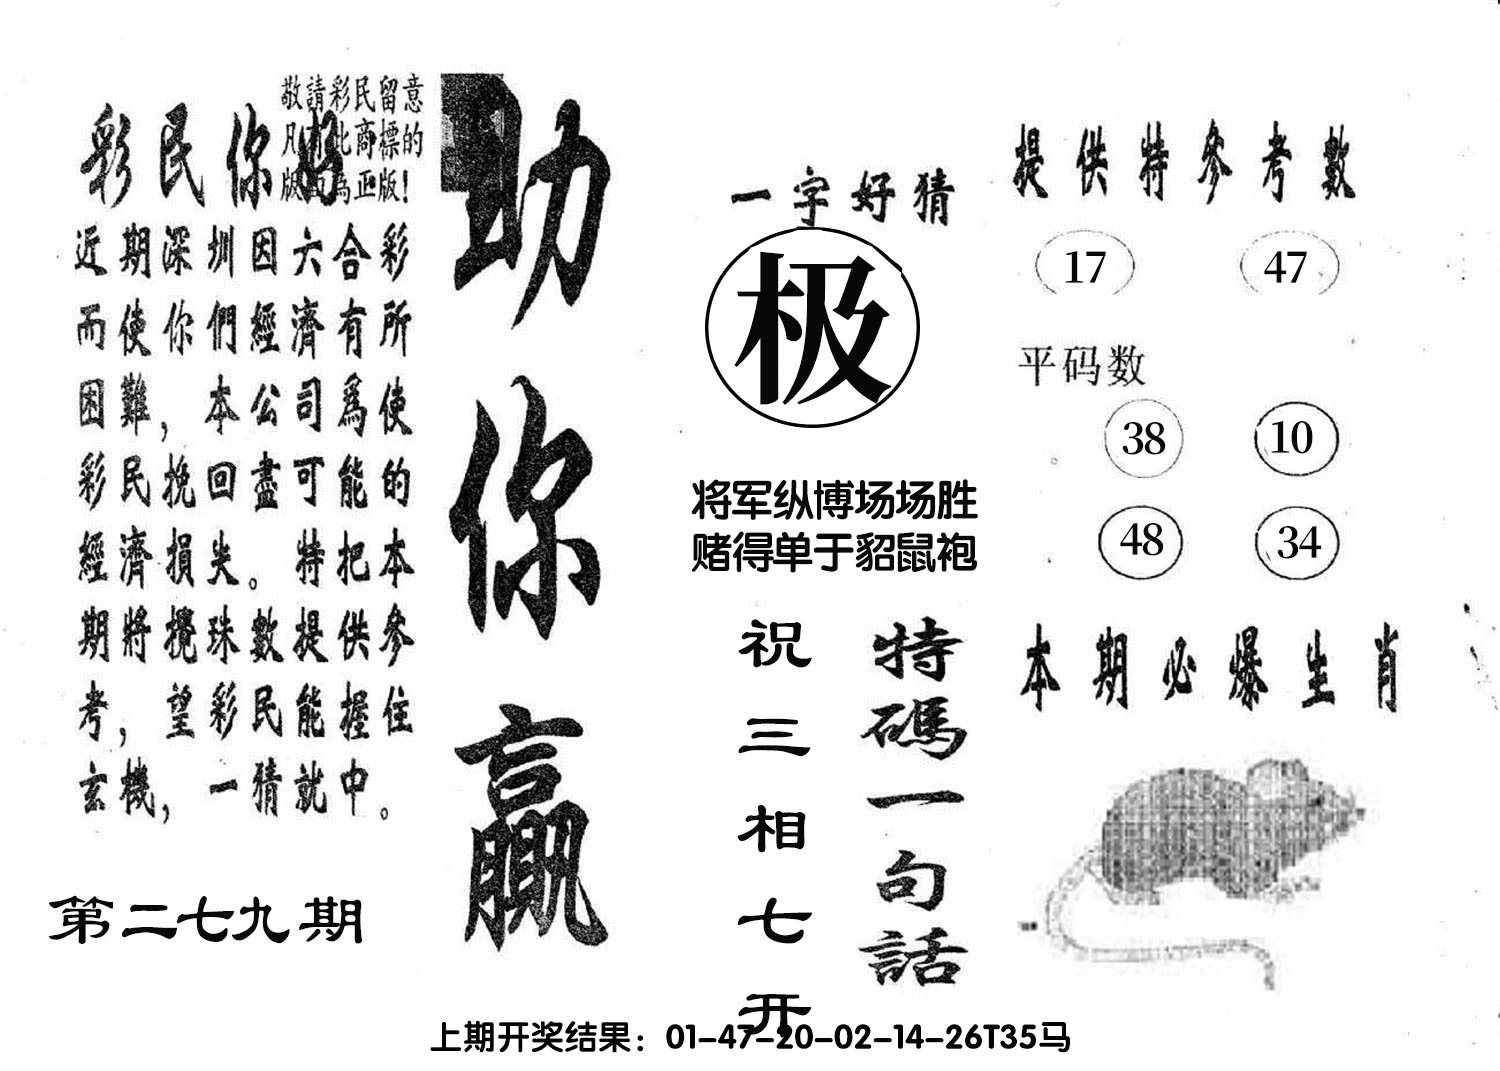 敬請彩民留意
凡有此商標的
版面為正版!
彩民你好
近期深圳因六合彩
而使你們經濟有所
困難，本公司爲使
彩民挽回盡可能的
經濟損失。特把本
期將攪珠數提供參
考，望彩民能握住
玄機，一猜就中。
第二七九期
助你贏
一字好猜
极
将军纵博场场胜
赌得单于貂鼠袍
特碼一句話
祝三相七开
提供特參考數
17 47
平码数
38 10
48 34
本期必爆生肖
上期开奖结果：01-47-20-02-14-26T35马